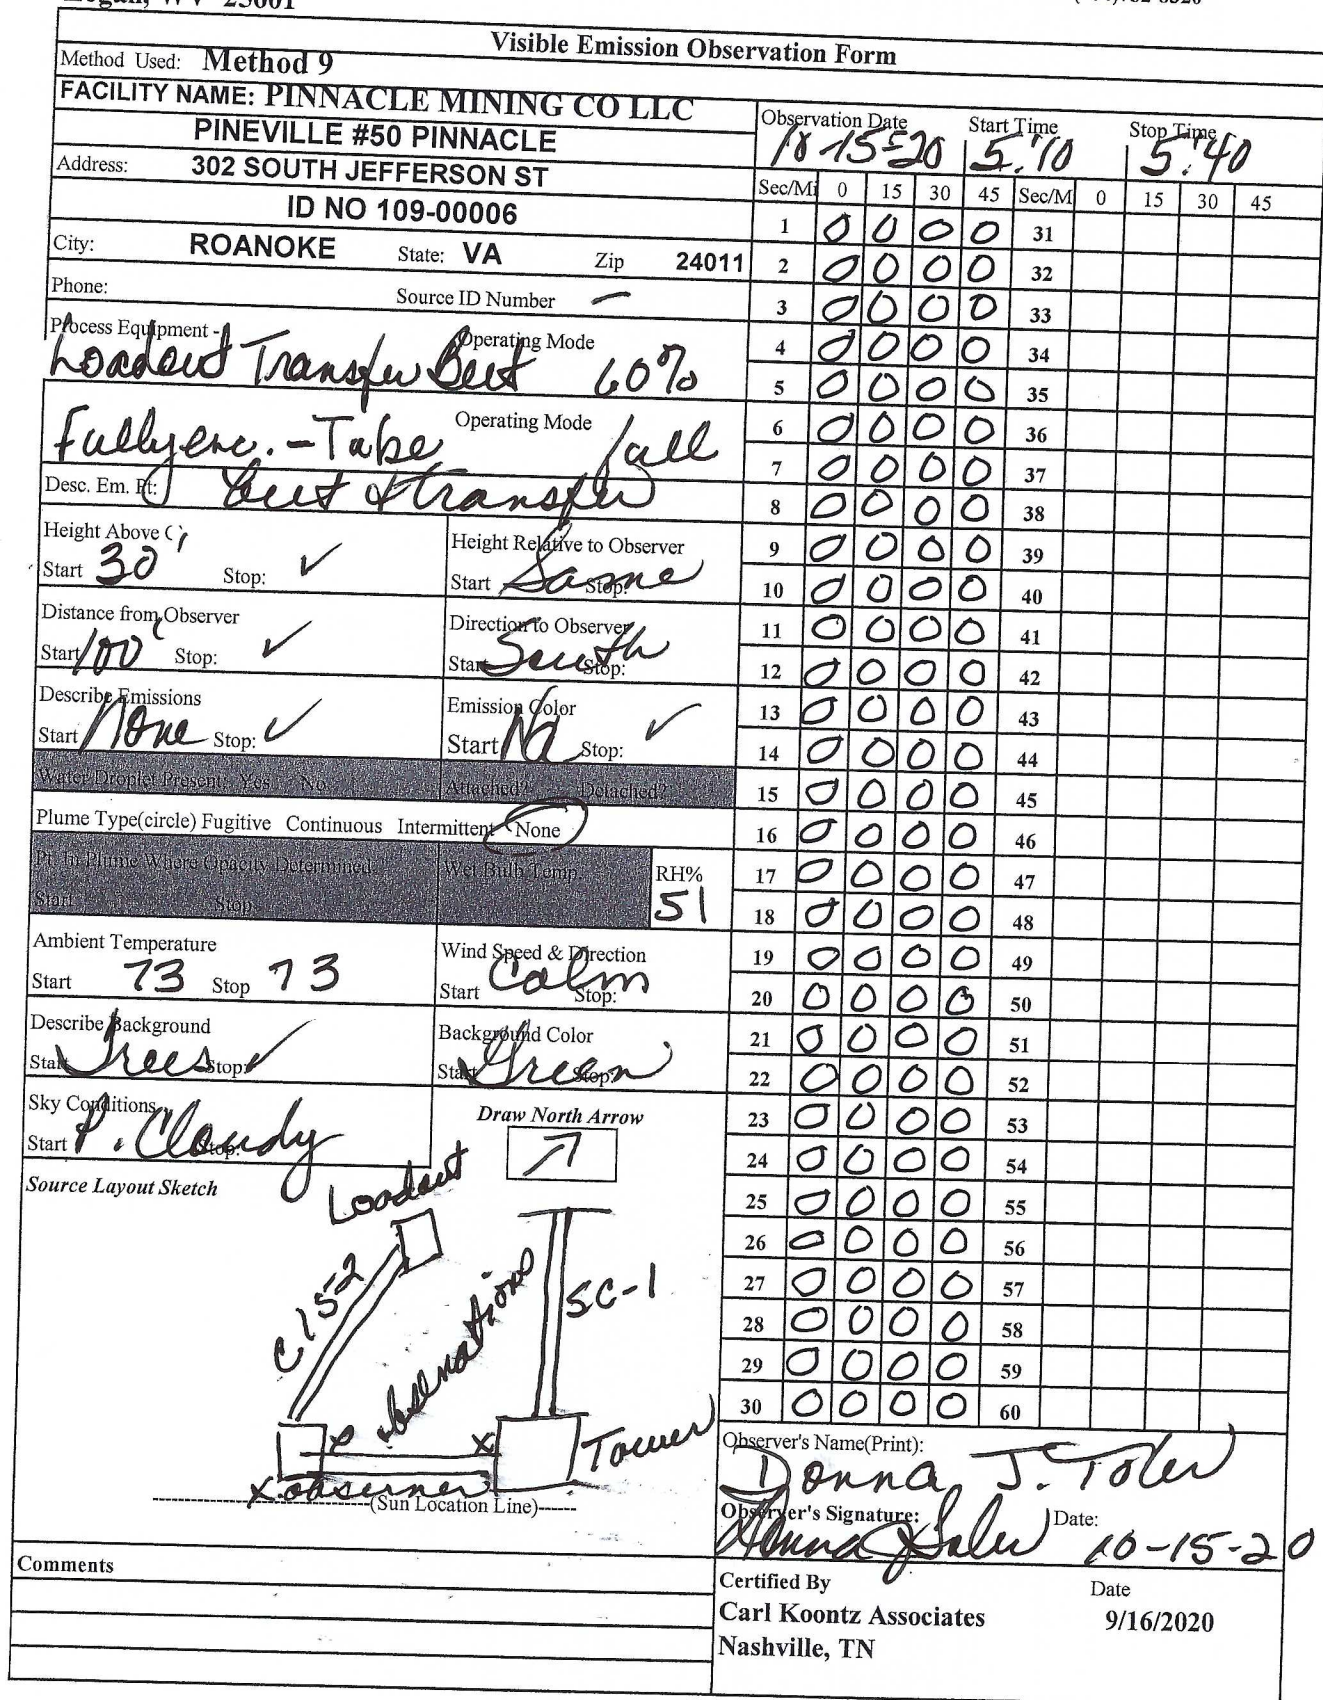 Logan, WV 25601
Visible Emission Observation Form
Method Used: Method 9
FACILITY NAME: PINNACLE MINING CO LLC
PINEVILLE #50 PINNACLE
Address: 302 SOUTH JEFFERSON ST
ID NO 109-00006
City: ROANOKE State: VA Zip 24011
Phone: Source ID Number —
Process Equipment - Operating Mode
Loadout Transfer Belt 60%
Operating Mode
Fully enc. - Tube
Desc. Em. Pt: Belt & transfer
Height Above G Height Relative to Observer
Start 30' Stop: ✓ Start Same Stop:
Distance from Observer Direction to Observer
Start 100' Stop: ✓ Start South Stop:
Describe Emissions Emission Color
Start None Stop: ✓ Start Na Stop: ✓
Water Droplet Present: Yes No Attached? Detached?
Plume Type(circle) Fugitive Continuous Intermittent None
Pt. In Plume Where Opacity Determined Wet Bulb Temp. RH%
Start Stop 51
Ambient Temperature Wind Speed & Direction
Start 73 Stop 73 Start Calm Stop:
Describe Background Background Color
Start Trees Stop: ✓ Start Green Stop:
Sky Conditions Draw North Arrow
Start P. Cloudy Stop:
Source Layout Sketch
Loadout
C152
observations
SC-1
Tower
x observer
(Sun Location Line)
Comments
Observation Date Start Time Stop Time
10-15-20 5:10 5:40
Sec/Mi 0 15 30 45 Sec/M 0 15 30 45
1 0 0 0 0 31
2 0 0 0 0 32
3 0 0 0 0 33
4 0 0 0 0 34
5 0 0 0 0 35
6 0 0 0 0 36
7 0 0 0 0 37
8 0 0 0 0 38
9 0 0 0 0 39
10 0 0 0 0 40
11 0 0 0 0 41
12 0 0 0 0 42
13 0 0 0 0 43
14 0 0 0 0 44
15 0 0 0 0 45
16 0 0 0 0 46
17 0 0 0 0 47
18 0 0 0 0 48
19 0 0 0 0 49
20 0 0 0 0 50
21 0 0 0 0 51
22 0 0 0 0 52
23 0 0 0 0 53
24 0 0 0 0 54
25 0 0 0 0 55
26 0 0 0 0 56
27 0 0 0 0 57
28 0 0 0 0 58
29 0 0 0 0 59
30 0 0 0 0 60
Observer's Name(Print):
Donna J. Toler
Observer's Signature: Date:
Donna J Toler 10-15-20
Certified By Date
Carl Koontz Associates 9/16/2020
Nashville, TN